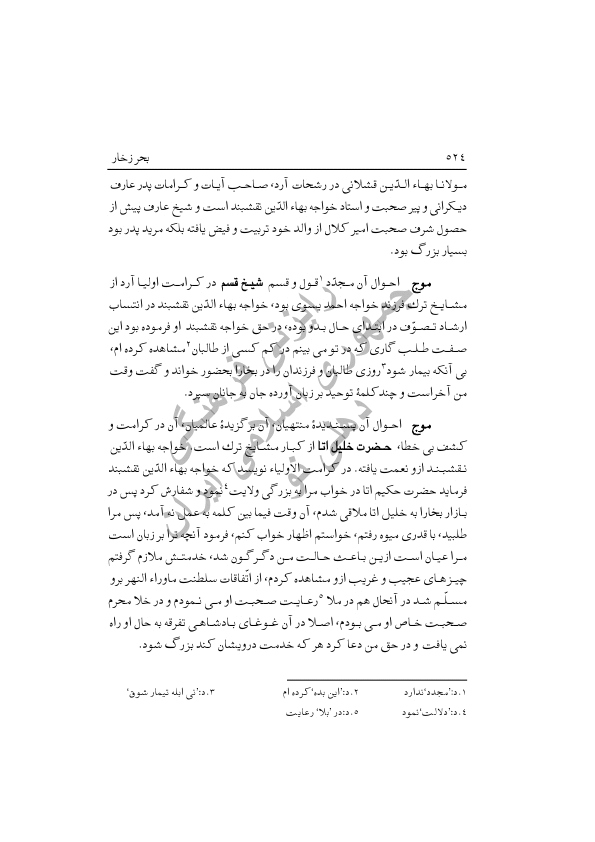 ۵۲۴ بحر زخار
مولانا بهاء الدّین قشلاتی در رشحات آرد، صاحب آیات و کرامات پدر عارف
دیکرانی و پیر صحبت و استاد خواجه بهاء الدّین نقشبند است و شیخ عارف پیش از
حصول شرف صحبت امیر کلال از والد خود تربیت و فیض یافته بلکه مرید پدر بود
بسیار بزرگ بود.
موج احوال آن مجدّد۱ قول و قسم شیخ قسم در کرامت اولیا آرد از
مشایخ ترك فرزند خواجه احمد یسوی بود، خواجه بهاء الدّین نقشبند در انتساب
ارشاد تصوّف در ابتدای حال بدو بوده، در حق خواجه نقشبند او فرموده بود این
صفت طلب گاری که در تو می بینم در کم کسی از طالبان۲ مشاهده کرده ام،
بی آنکه بیمار شود۳ روزی طالبان و فرزندان را در بخارا بحضور خواند و گفت وقت
من آخر است و چند کلمهٔ توحید بر زبان آورده جان به جانان سپرد.
موج احوال آن پسندیدهٔ منتهیان، آن برگزیدهٔ عالمیان، آن در کرامت و
کشف بی خطا، حضرت خلیل اتا از کبار مشایخ ترك است. خواجه بهاء الدّین
نقشبند ازو نعمت یافته. در کرامت الاولیاء نویسد که خواجه بهاء الدّین نقشبند
فرماید حضرت حکیم اتا در خواب مرا به بزرگی ولایت۴ نمود و شفارش کرد پس در
بازار بخارا به خلیل اتا ملاقی شدم، آن وقت فیما بین کلمه به عمل نه آمد، پس مرا
طلبید، با قدری میوه رفتم، خواستم اظهار خواب کنم، فرمود آنچه ترا بر زبان است
مرا عیان است ازین باعث حالت من دگرگون شد، خدمتش ملازم گرفتم
چیزهای عجیب و غریب ازو مشاهده کردم، از اتّفاقات سلطنت ماوراء النهر برو
مسلّم شد در آنحال هم در ملا۵ رعایت صحبت او می نمودم و در خلا محرم
صحبت خاص او می بودم، اصلا در آن غوغای بادشاهی تفرقه به حال او راه
نمی یافت و در حق من دعا کرد هر که خدمت درویشان کند بزرگ شود.
۱.د:'مجدد' ندارد ۲.د:'این بده' کرده ام ۳.د:'نی ابله تیمار شوق'
۴.د:'دلالت' نمود ۵.د:در 'بلا' رعایت
رایزنی فرهنگی
جمهوری اسلامی ایران
دهلی نو